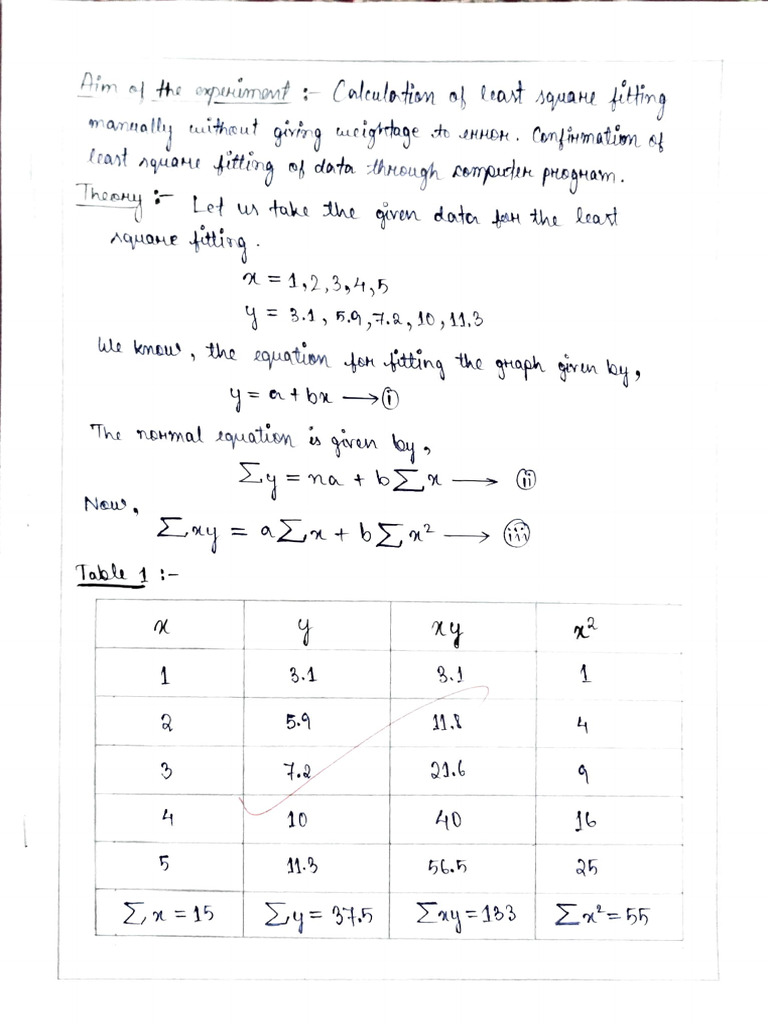 Aim of the experiment :- Calculation of least square fitting
manually without giving weightage to error. Confirmation of
least square fitting of data through computer program.
Theory :- Let us take the given data for the least
square fitting.
x = 1, 2, 3, 4, 5
y = 3.1, 5.9, 7.2, 10, 11.3
We know, the equation for fitting the graph given by,
y = a + bx ⟶ (i)
The normal equation is given by,
∑y = na + b∑x ⟶ (ii)
Now,
∑xy = a∑x + b∑x² ⟶ (iii)
Table 1 :-
x y xy x²
1 3.1 3.1 1
2 5.9 11.8 4
3 7.2 21.6 9
4 10 40 16
5 11.3 56.5 25
∑x = 15 ∑y = 37.5 ∑xy = 133 ∑x² = 55